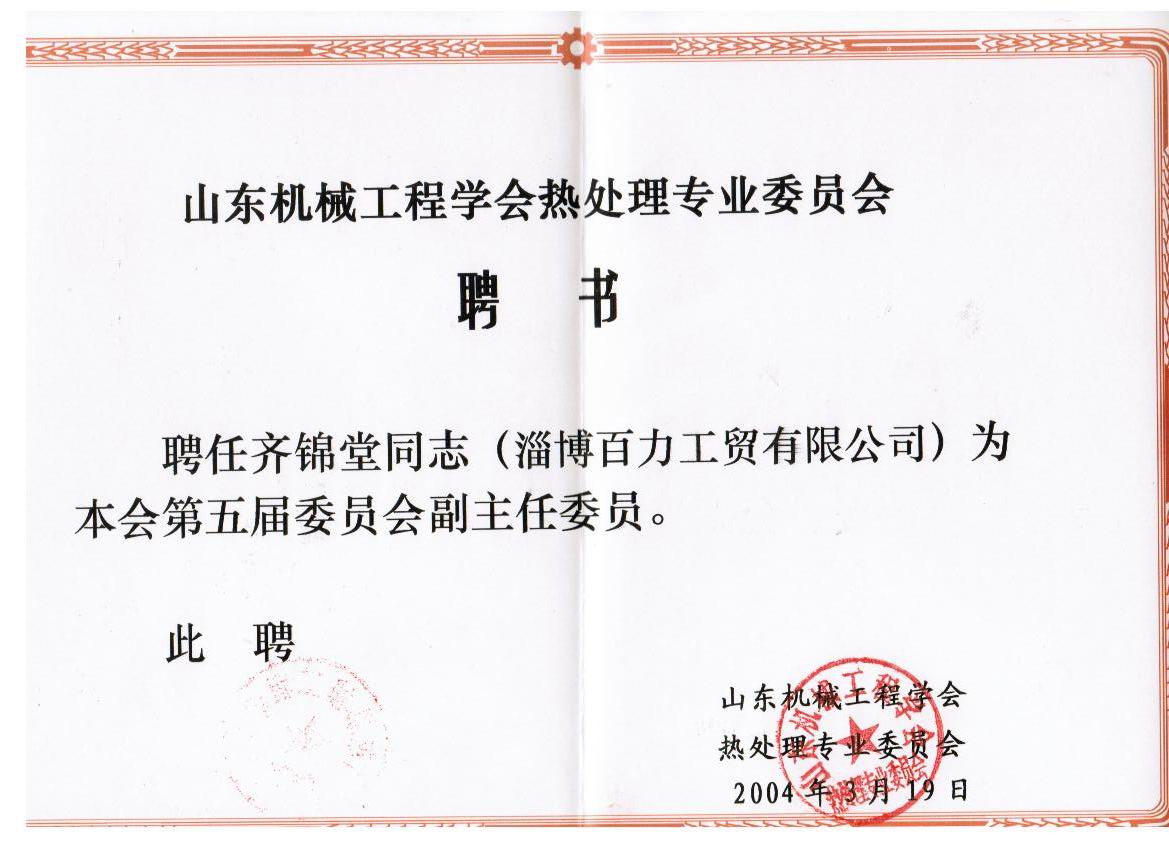 山东机械工程学会热处理专业委员会
聘 书
聘任齐锦堂同志（淄博百力工贸有限公司）为
本会第五届委员会副主任委员。
此 聘
山东机械工程学会
热处理专业委员会
2004年3月19日
山东机械工程学会
热处理专业委员会